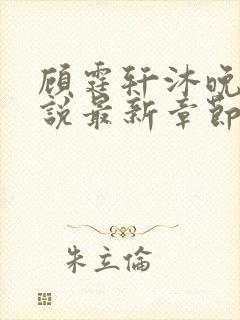 顾霆轩沐晚
說最新章節
朱立倫